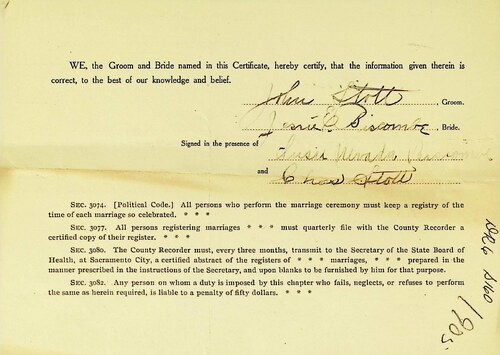 WE, the Groom and Bride named in this Certificate, hereby certify, that the information given therein is
correct, to the best of our knowledge and belief.
John Stott, Groom.
Jessie E. Biscombe, Bride.
Signed in the presence of Susie Nevada
and Chas Stott
SEC. 3074. [Political Code.] All persons who perform the marriage ceremony must keep a registry of
the time of each marriage so celebrated. * * *
SEC. 3077. All persons registering marriages * * * must quarterly file with the County Recorder a
certified copy of their register. * * *
SEC. 3080. The County Recorder must, every three months, transmit to the Secretary of the State Board of
Health, at Sacramento City, a certified abstract of the registers of * * * marriages, * * * prepared in the
manner prescribed in the instructions of the Secretary, and upon blanks to be furnished by him for that purpose.
SEC. 3082. Any person on whom a duty is imposed by this chapter who fails, neglects, or refuses to perform
the same as herein required, is liable to a penalty of fifty dollars. * * *
1905